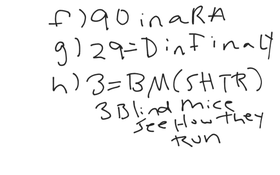 f) 90 in a RA
g) 29 = D in F in a LY
h) 3 = BM (SHTR)
3 Blind mice
see How they
run